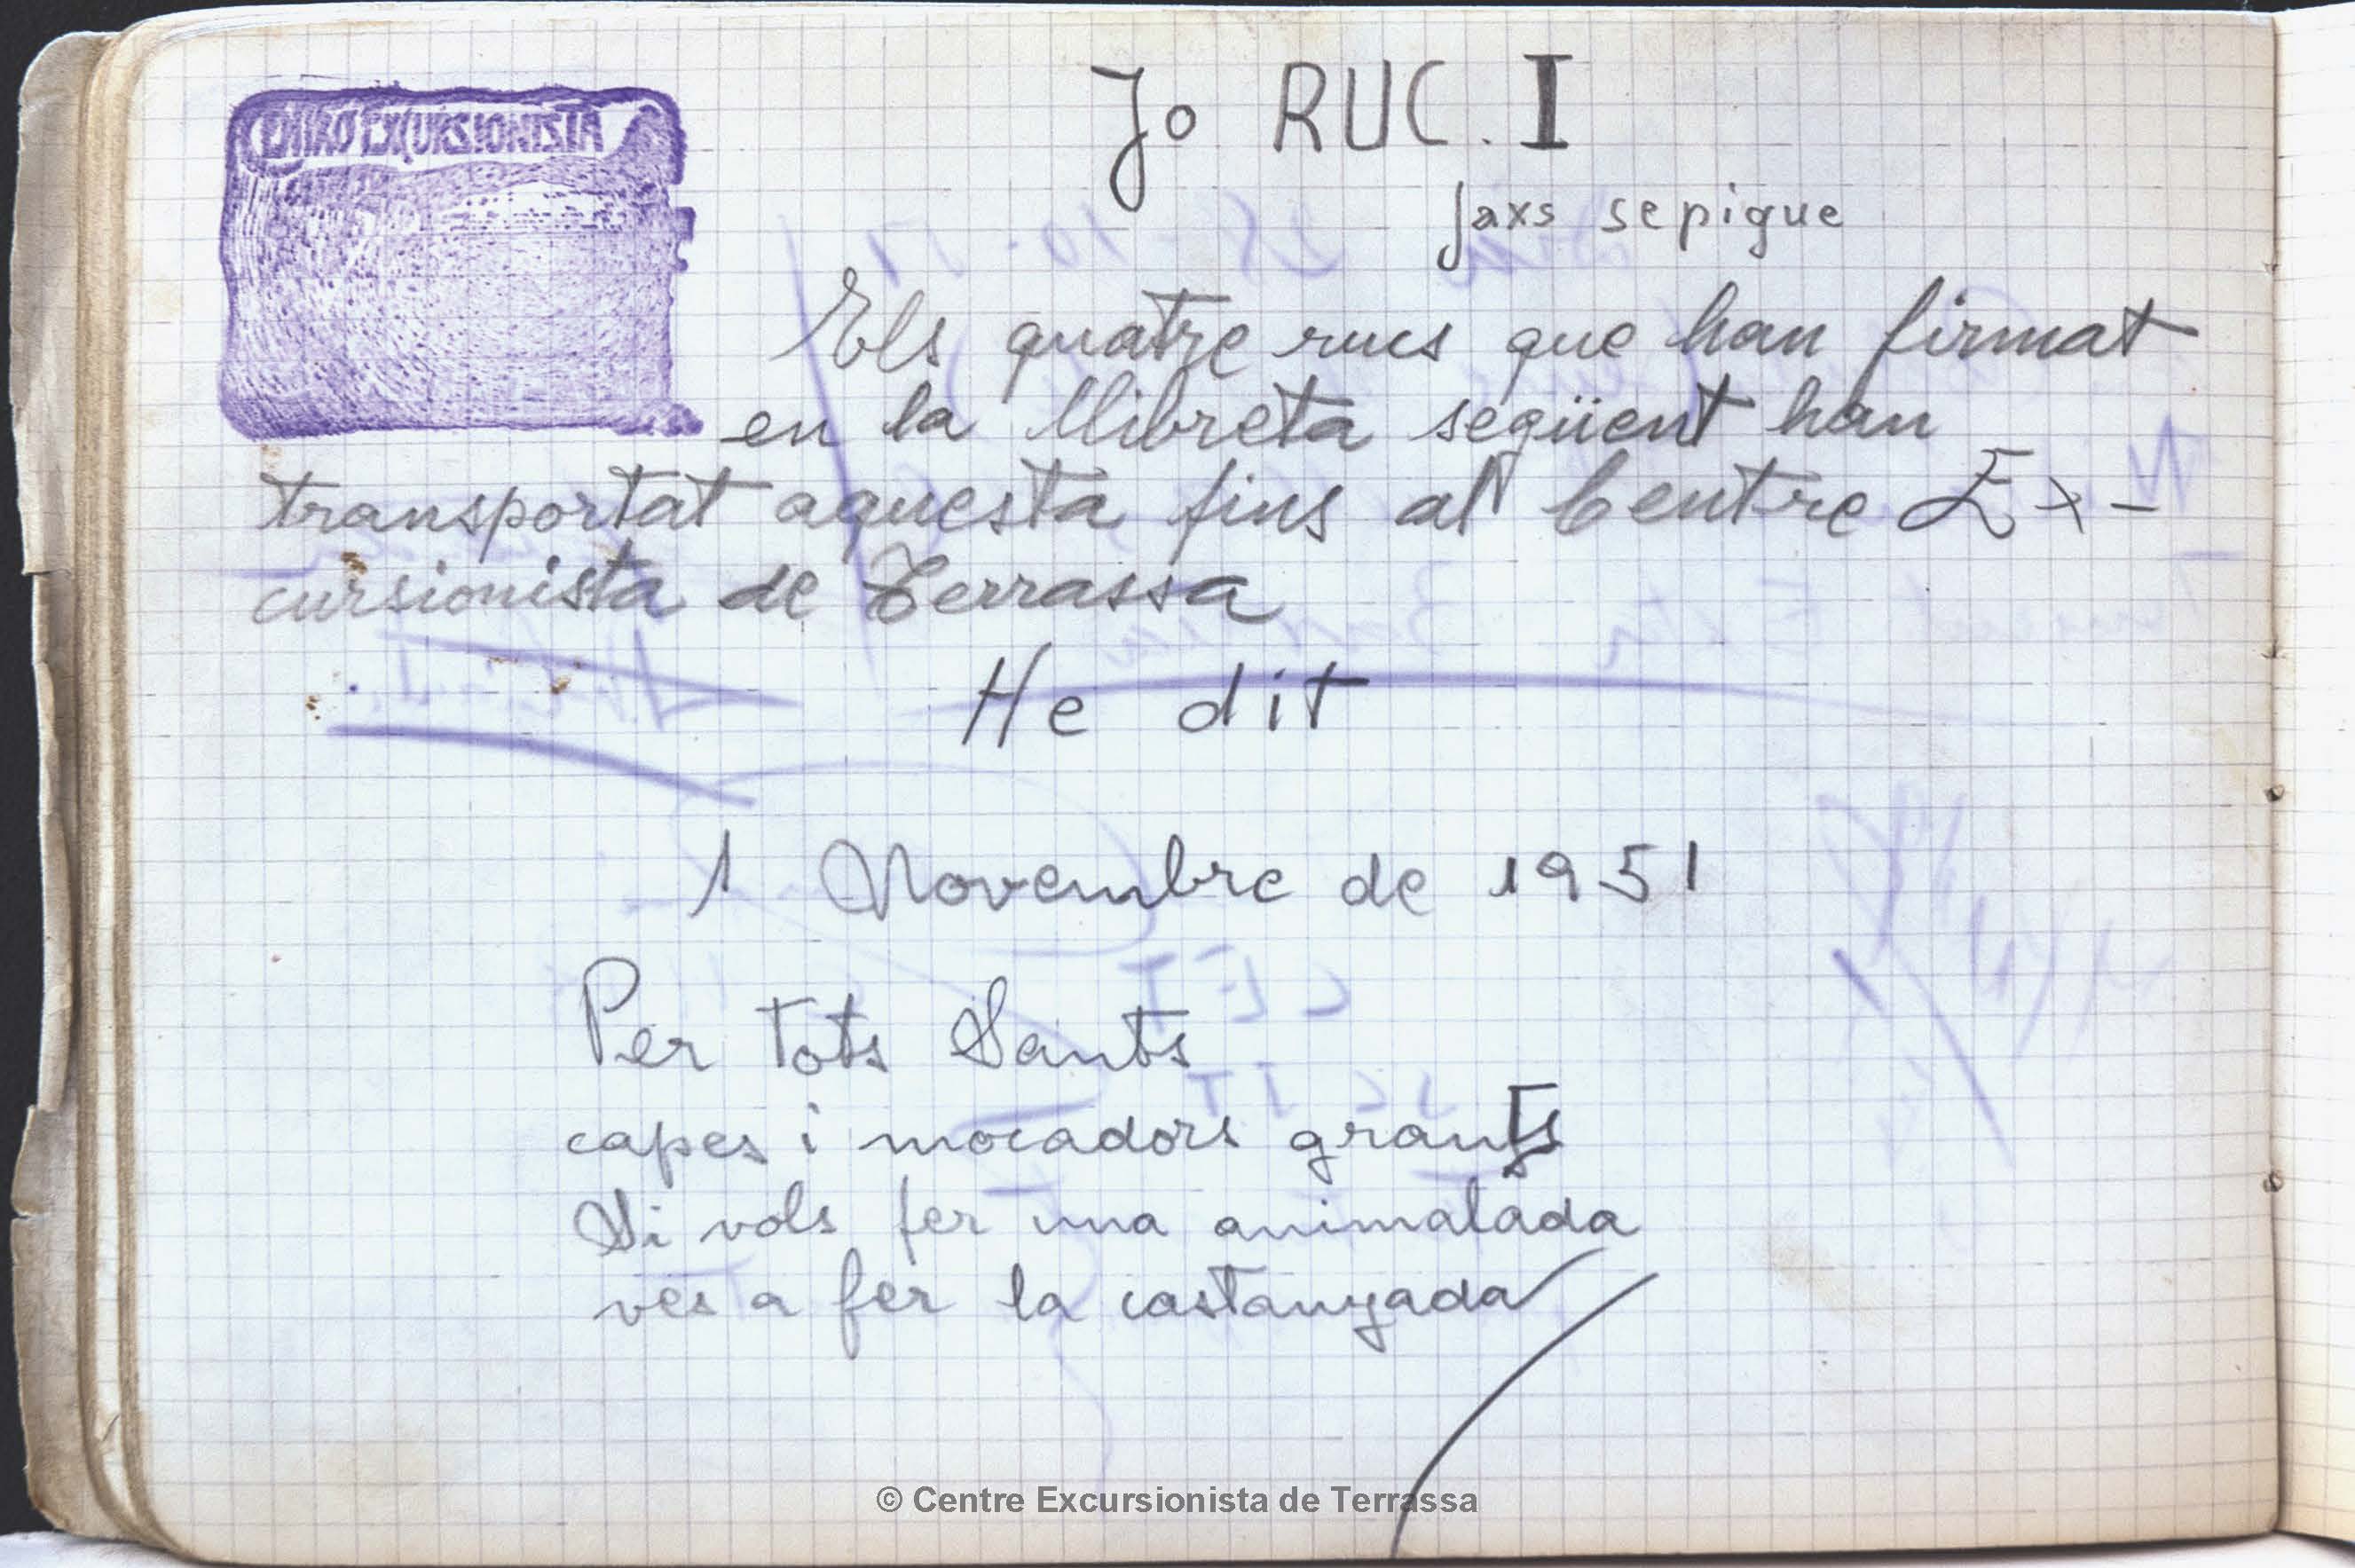 CENTRO EXCURSIONISTA
Jo RUC. I
faxs sepigue
Els quatre rucs que han firmat
en la llibreta següent han
transportat aquesta fins al Centre Ex-
cursionista de Terrassa
He dit
1 Novembre de 1951
Per tots Sants
capes i mocadors grants
Si vols fer una animalada
ves a fer la castanyada
© Centre Excursionista de Terrassa